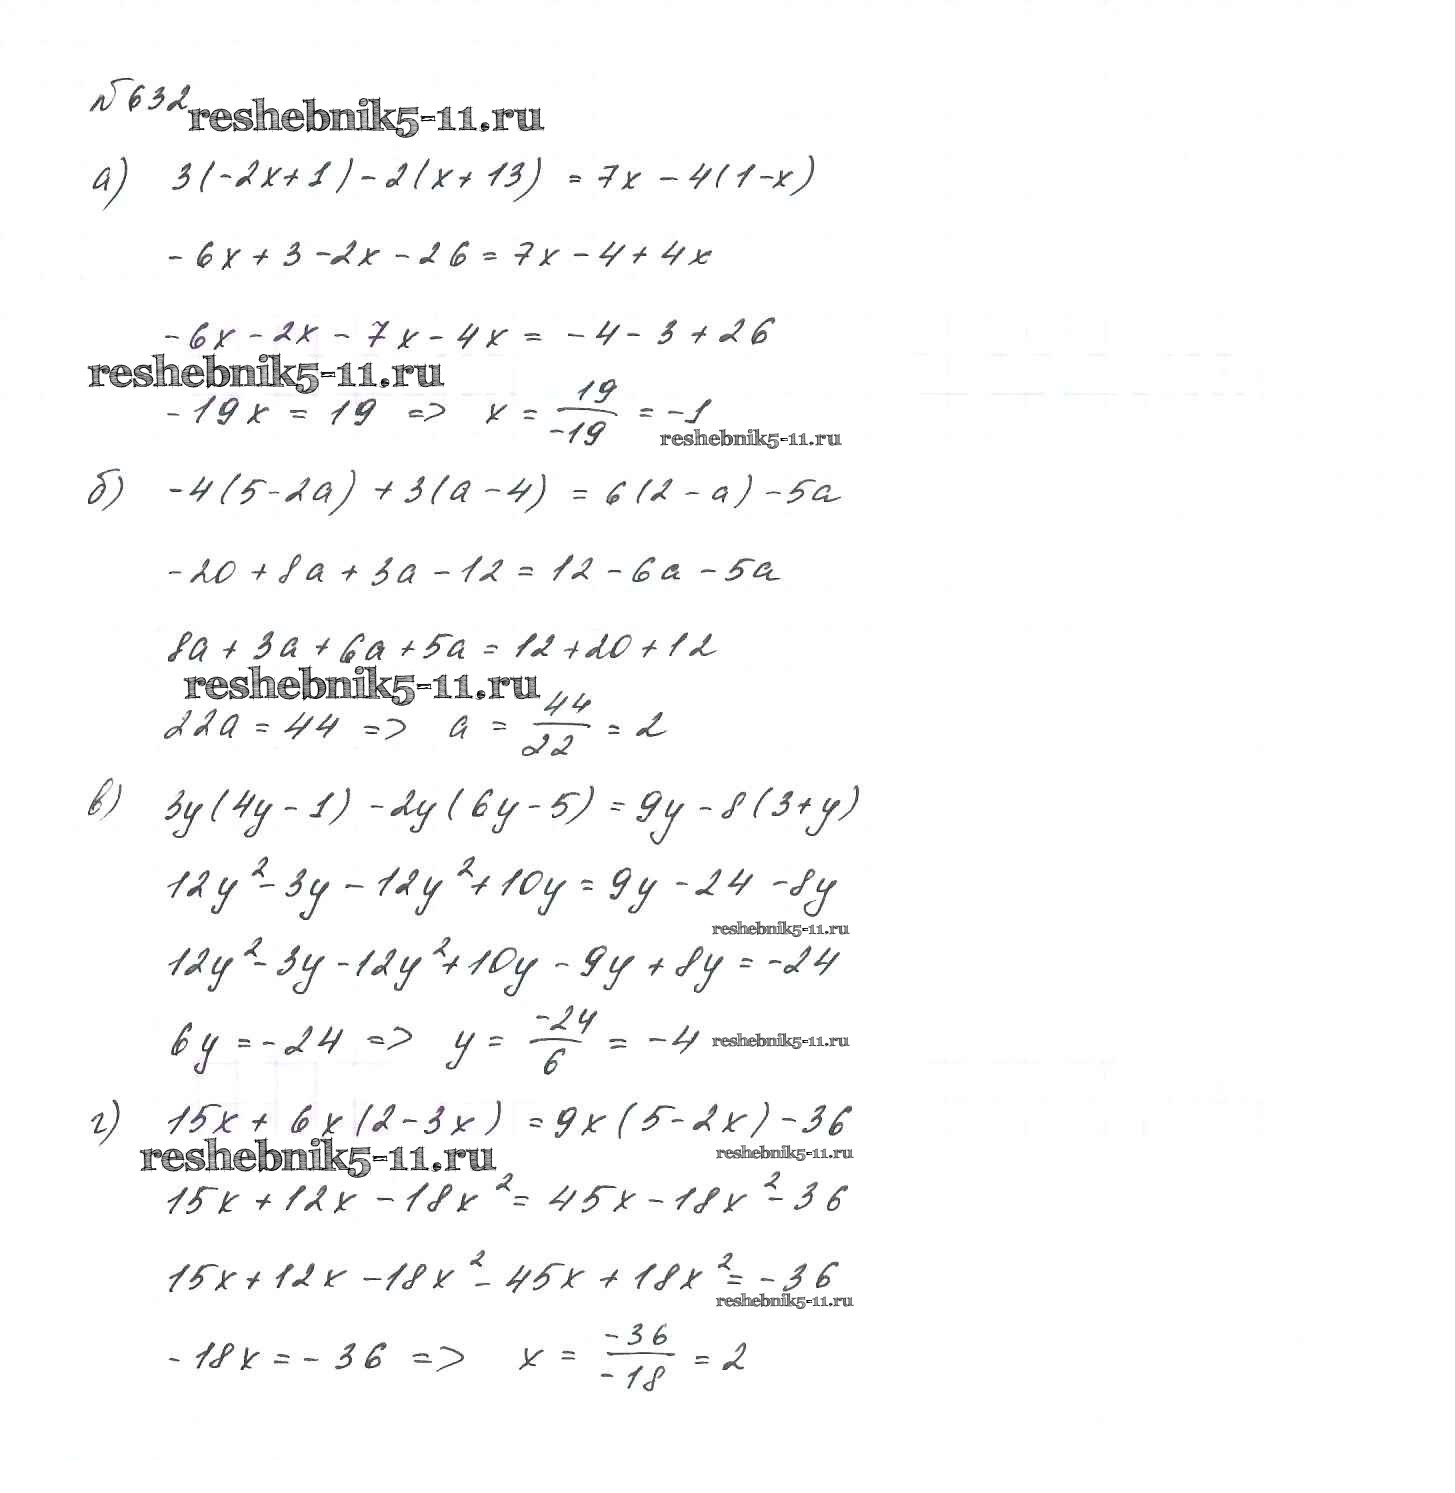 № 632
reshebnik5-11.ru
а) 3(-2x+1)-2(x+13) = 7x-4(1-x)
-6x+3-2x-26=7x-4+4x
-6x-2x-7x-4x= -4-3+26
reshebnik5-11.ru
-19x = 19 => x = 19/-19 = -1
reshebnik5-11.ru
б) -4(5-2a)+3(a-4) = 6(2-a)-5a
-20+8a+3a-12=12-6a-5a
8a+3a+6a+5a=12+20+12
reshebnik5-11.ru
22a=44 => a = 44/22 = 2
в) 3y(4y-1)-2y(6y-5)=9y-8(3+y)
12y²-3y-12y²+10y=9y-24-8y
reshebnik5-11.ru
12y²-3y-12y²+10y-9y+8y=-24
6y=-24 => y = -24/6 = -4
reshebnik5-11.ru
г) 15x+6x(2-3x) =9x(5-2x)-36
reshebnik5-11.ru
reshebnik5-11.ru
15x+12x-18x²= 45x-18x²-36
15x+12x-18x²-45x+18x²=-36
reshebnik5-11.ru
-18x=-36 => x = -36/-18 = 2